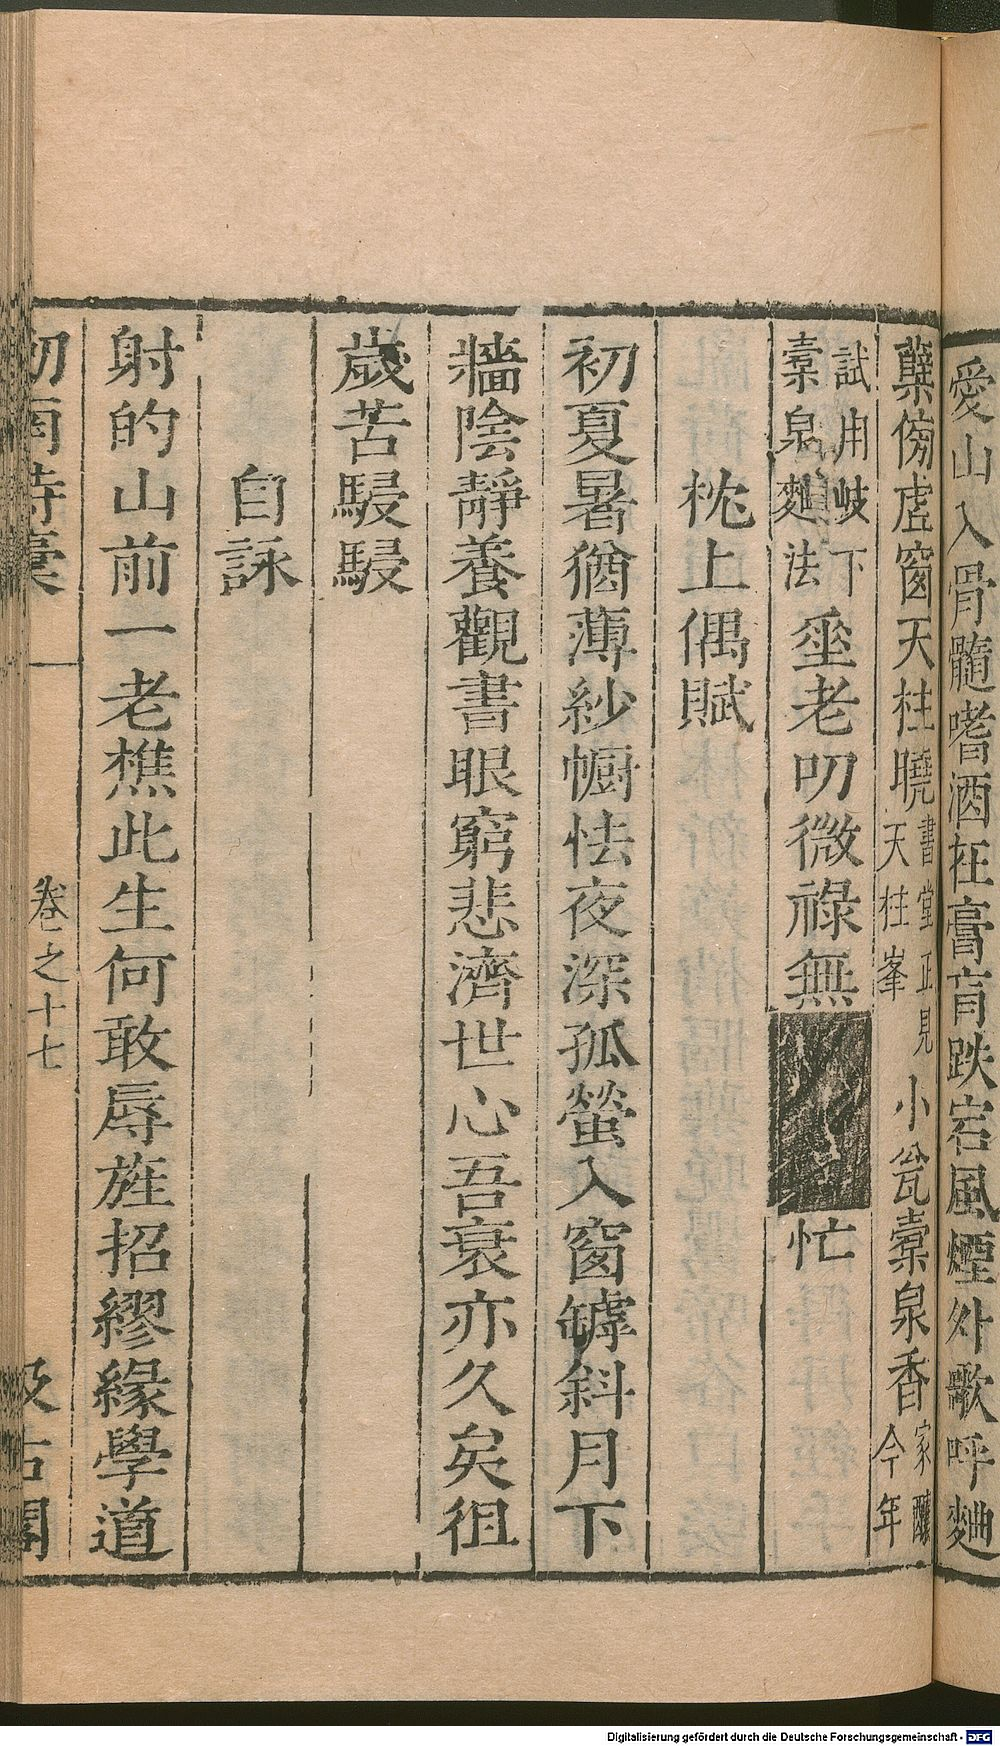 愛山入骨髓嗜酒在膏肓跌宕風煙外歌呼麴
蘖傍虛窗天柱曉書堂正見天柱峯小瓮橐泉香家釀今年
試用岐下橐泉麴法坐老叨微祿無忙
枕上偶賦
初夏暑猶薄紗幮怯夜深孤螢入窗罅斜月下
牆陰靜養觀書眼窮悲濟世心吾衰亦久矣徂
歲苦駸駸
自詠
射的山前一老樵此生何敢辱旌招繆緣學道
劍南詩稾 卷之十七 汲古閣
Digitalisierung gefördert durch die Deutsche Forschungsgemeinschaft - DFG